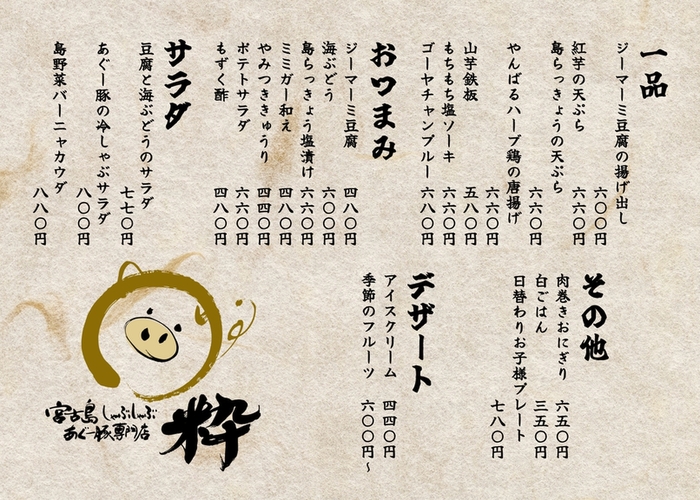 一品
ジーマーミ豆腐の揚げ出し 六〇〇円
紅芋の天ぷら 六六〇円
島らっきょうの天ぷら 六六〇円
やんばるハーブ鶏の唐揚げ 六六〇円
山芋鉄板 五八〇円
もちもち塩ソーキ 六六〇円
ゴーヤチャンプルー 六八〇円
おつまみ
ジーマーミ豆腐 四八〇円
海ぶどう 六〇〇円
島らっきょう塩漬け 六六〇円
ミミガー和え 四八〇円
やみつききゅうり 四四〇円
ポテトサラダ 六六〇円
もずく酢 四八〇円
サラダ
豆腐と海ぶどうのサラダ 七七〇円
あぐー豚の冷しゃぶサラダ 八〇〇円
島野菜バーニャカウダ 八八〇円
その他
肉巻きおにぎり 六五〇円
白ごはん 三五〇円
日替わりお子様プレート 七八〇円
デザート
アイスクリーム 四四〇円
季節のフルーツ 六〇〇円〜
宮古島 しゃぶしゃぶ
あぐー豚専門店
粋